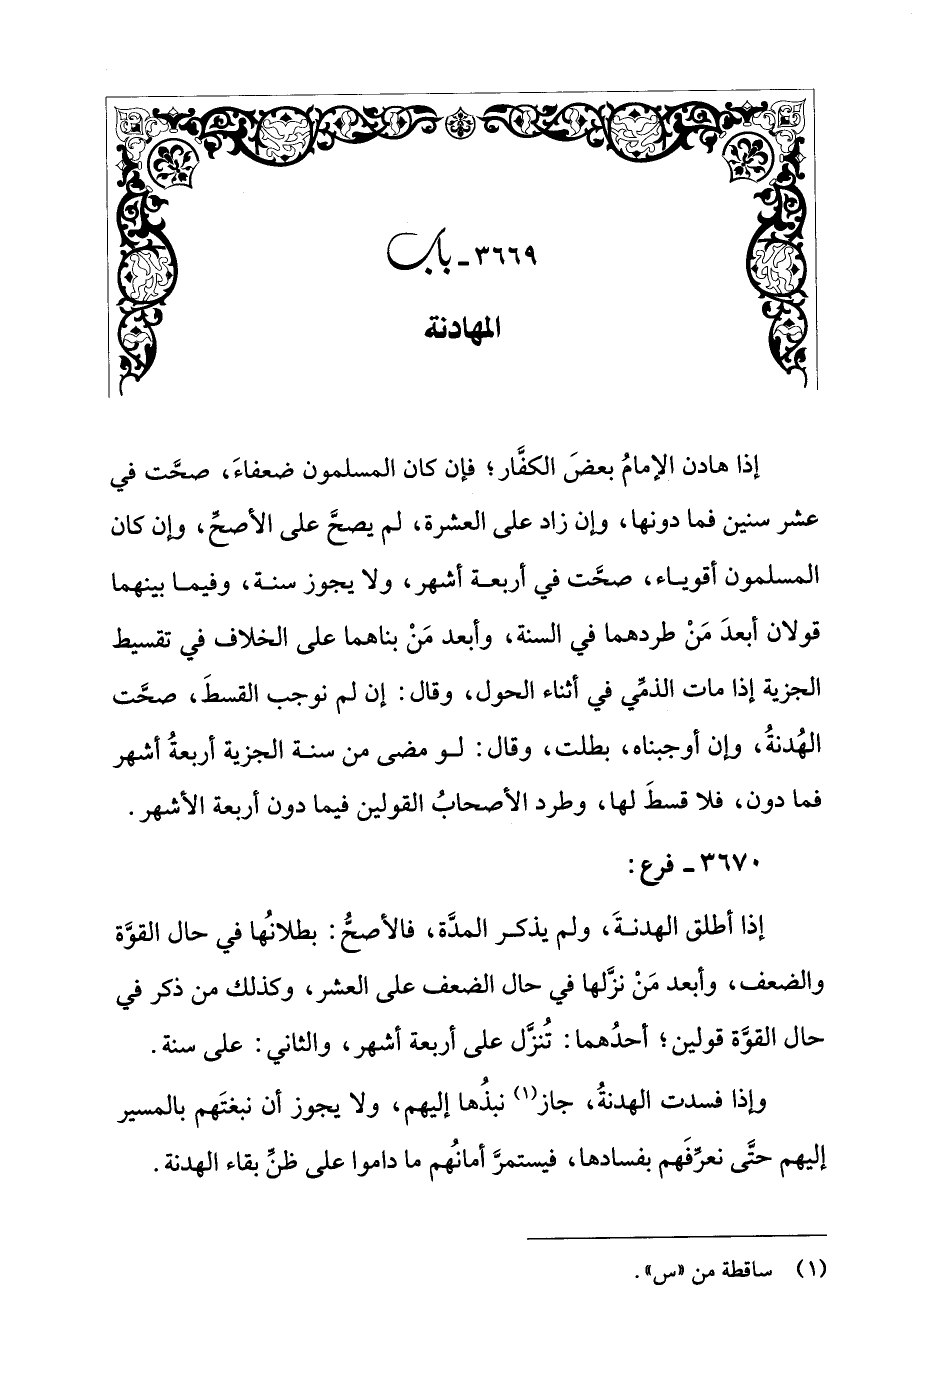 ٣٦٦٩ - باب
المهادنة
إذا هادن الإمامُ بعضَ الكفَّار؛ فإن كان المسلمون ضعفاءَ، صحَّت في
عشر سنين فما دونها، وإن زاد على العشرة، لم يصحَّ على الأصحِّ، وإن كان
المسلمون أقوياء، صحَّت في أربعة أشهر، ولا يجوز سنة، وفيما بينهما
قولان أبعدَ مَنْ طردهما في السنة، وأبعد مَنْ بناهما على الخلاف في تقسيط
الجزية إذا مات الذمِّي في أثناء الحول، وقال: إن لم نوجب القسطَ، صحَّت
الهُدنةُ، وإن أوجبناه، بطلت، وقال: لو مضى من سنة الجزية أربعةُ أشهر
فما دون، فلا قسطَ لها، وطرد الأصحابُ القولين فيما دون أربعة الأشهر.
٣٦٧٠ - فرع:
إذا أطلق الهدنةَ، ولم يذكر المدَّة، فالأصحُّ: بطلانُها في حال القوَّة
والضعف، وأبعد مَنْ نزَّلها في حال الضعف على العشر، وكذلك من ذكر في
حال القوَّة قولين؛ أحدُهما: تُنزَّل على أربعة أشهر، والثاني: على سنة.
وإذا فسدت الهدنةُ، جاز(١) نبذُها إليهم، ولا يجوز أن نبغتَهم بالمسير
إليهم حتَّى نعرِّفَهم بفسادها، فيستمرَّ أمانُهم ما داموا على ظنِّ بقاء الهدنة.
(١) ساقطة من «س».